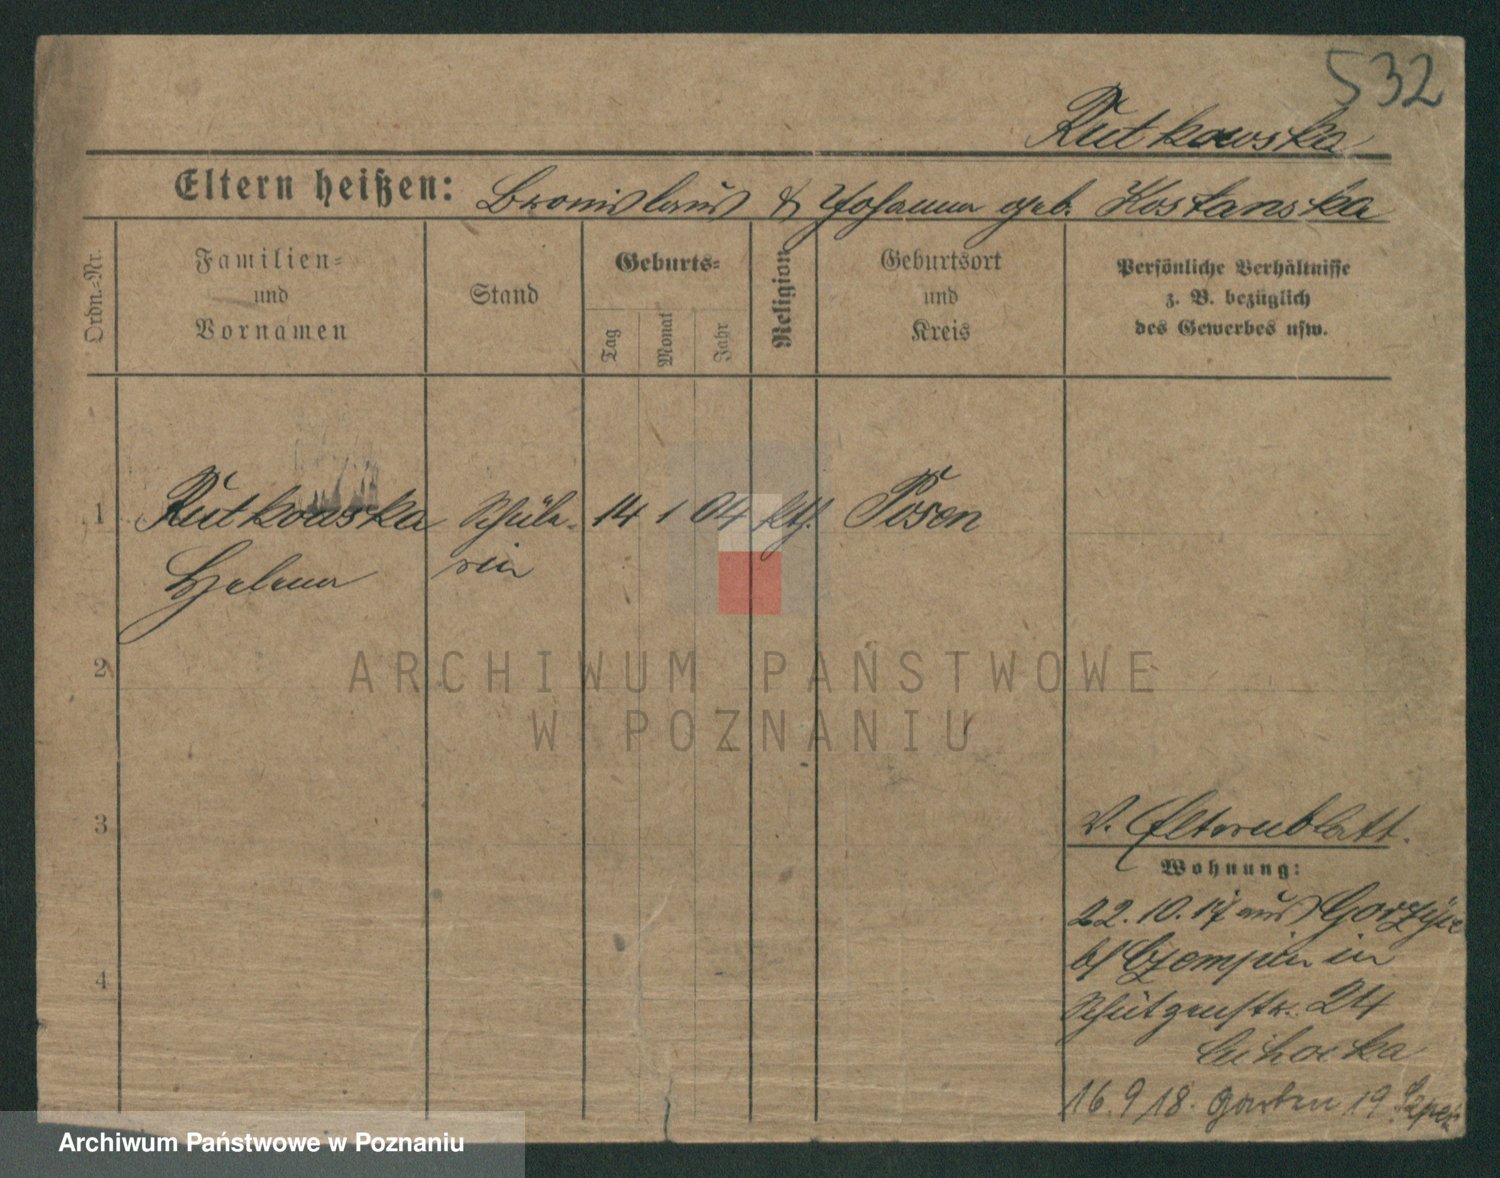 532
Rutkowska
Eltern heißen: Bronislaus & Johanna geb. Kostanska
Ordn.-Nr.
Familien-
und
Vornamen
Stand
Geburts-
Tag
Monat
Jahr
Religion
Geburtsort
und
Kreis
Persönliche Verhältnisse
z. B. bezüglich
des Gewerbes usw.
1 Rutkowska Schüle- 14 1 04 kth. Posen
Helena rin
2
3
4
v. Elternblatt.
Wohnung:
22.10.17 aus
b/ Czempin in
Schützenstr. 24
Cichocka
16.9.18. Garten 19
ARCHIWUM PAŃSTWOWE
W POZNANIU
Archiwum Państwowe w Poznaniu